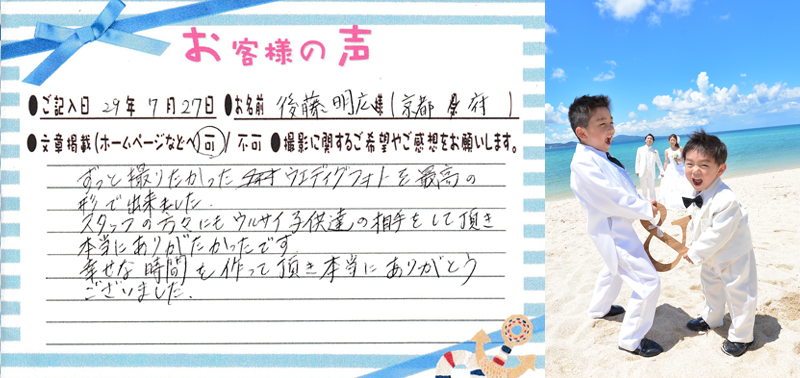 お客様の声
●ご記入日 29年 7月27日 ●お名前 後藤 明広様(京都 府 )
●文章掲載(ホームページなどへ)可 / 不可 ●撮影に関するご希望やご感想をお願いします。
ずっと撮りたかった ウエディグフォトを最高の
形で出来ました.
スタッフの方々にもウルサイ子供達の相手をして頂き
本当にありがたかったです
幸せな時間を作って頂き本当にありがとう
ございました.
&